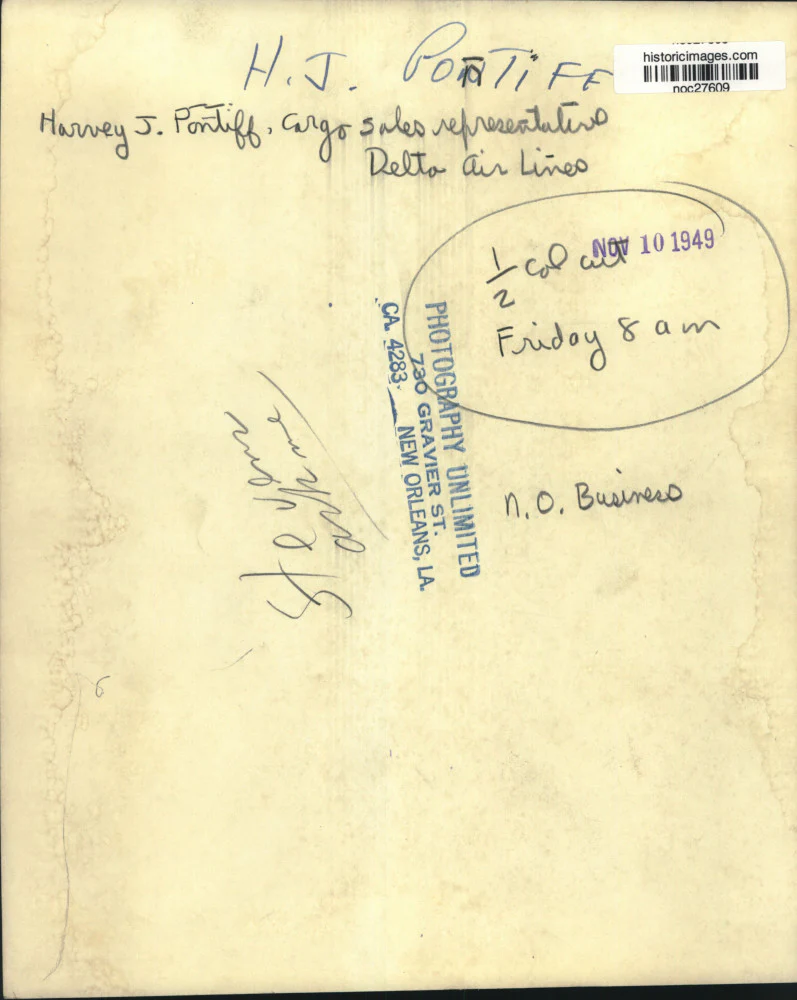 H.J. PONTIFF
historicimages.com
noc27609
Harvey J. Pontiff, Cargo sales representative
Delta Air Lines
NOV 10 1949
1/2 col cut
Friday 8 am
PHOTOGRAPHY UNLIMITED
730 GRAVIER ST.
CA. 4283 — NEW ORLEANS, LA.
N.O. Business
6